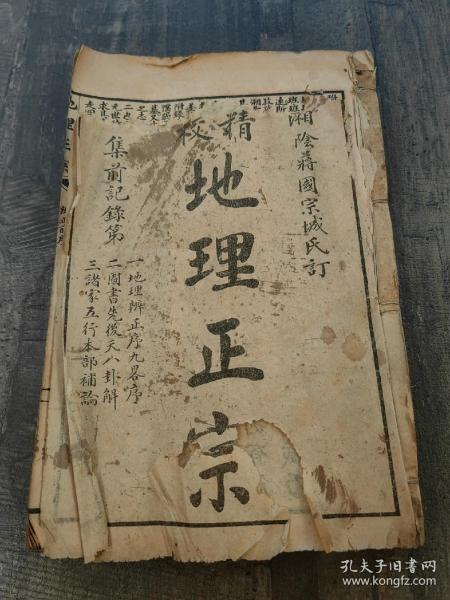 湘陰蔣國宗城氏訂
精校
地理正宗
集前記錄第
一地理辨正序九畧序
二圖書先後天八卦解
三諸家五行本部補論
孔夫子旧书网
www.kongfz.com